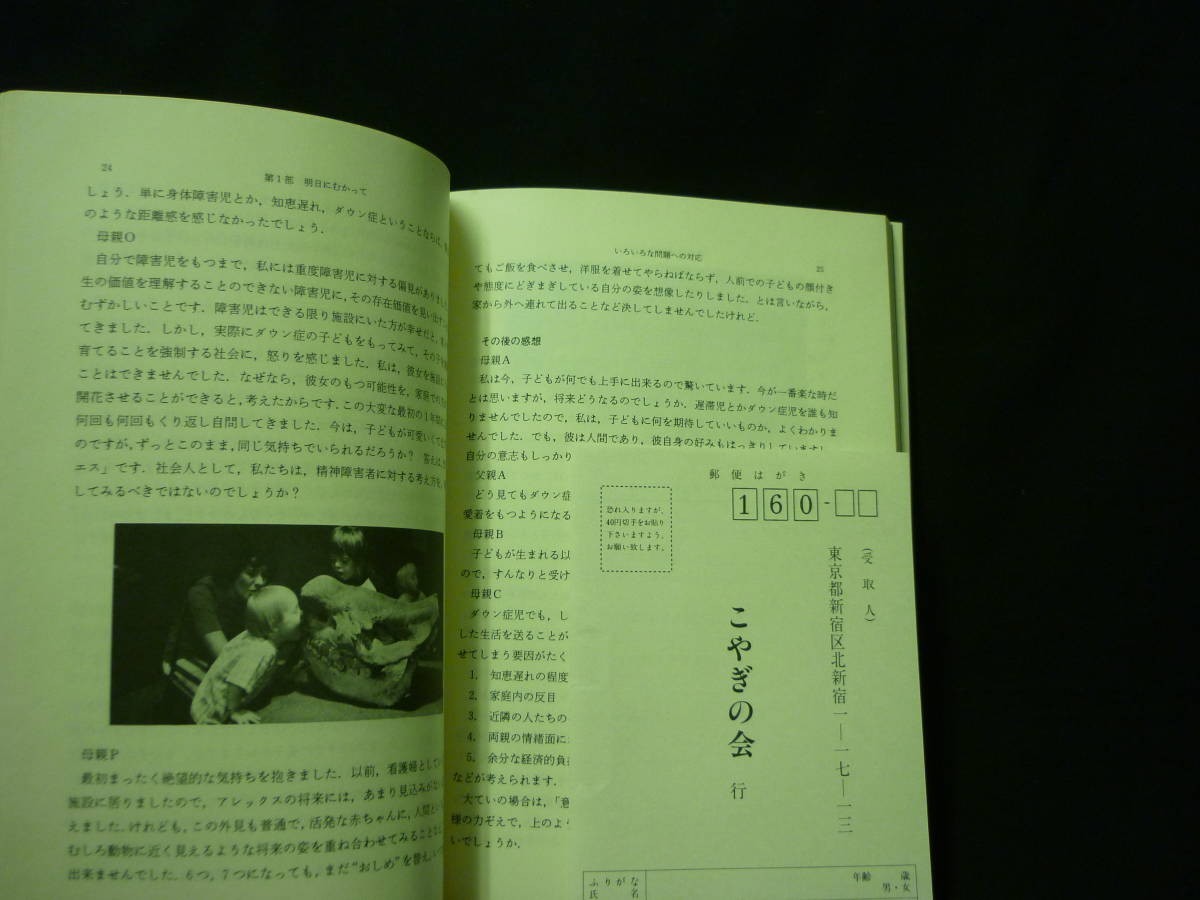 24
第1部 明日にむかって
しょう．単に身体障害児とか，知恵遅れ，ダウン症ということならば，
のような距離感を感じなかったでしょう．
母親O
自分で障害児をもつまで，私には重度障害児に対する偏見がありまし
生の価値を理解することのできない障害児に，その存在価値を見い出す
むずかしいことです．障害児はできる限り施設にいた方が幸せだと，
てきました．しかし，実際にダウン症の子どもをもってみて，その子を
育てることを強制する社会に，怒りを感じました．私は，彼女を施設に
ことはできませんでした．なぜなら，彼女のもつ可能性を，家庭での
開花させることができると，考えたからです．この大変な最初の1年間
何回も何回もくり返し自問してきました．今は，子どもが可愛いくて
のですが，ずっとこのまま，同じ気持ちでいられるだろうか？ 答えは，
エス」です．社会人として，私たちは，精神障害者に対する考え方を，
してみるべきではないのでしょうか？
母親P
最初まったく絶望的な気持ちを抱きました．以前，看護婦として
施設に居りましたので，アレックスの将来には，あまり見込みがない
えました．けれども，この外見も普通で，活発な赤ちゃんに，人間という
むしろ動物に近く見えるような将来の姿を重ね合わせてみることなど
出来ませんでした．6つ，7つになっても，まだ“おしめ”を替え，
いろいろな問題への対応
25
てもご飯を食べさせ，洋服を着せてやらねばならず，人前での子どもの顔付き
や態度にどぎまぎしている自分の姿を想像したりしました．とは言いながら，
家から外へ連れて出ることなど決してしませんでしたけれど．
その後の感想
母親A
私は今，子どもが何でも上手に出来るので驚いています．今が一番楽な時だ
とは思いますが，将来どうなるのでしょうか．遅滞児とかダウン症児を誰も知
りませんでしたので，私は，子どもに何を期待していいものか，よくわかりま
せんでした．でも，彼は人間であり，彼自身の好みもはっきりしていますし
自分の意志もしっかり
父親A
どう見てもダウン症
愛着をもつようになる
母親B
子どもが生まれる以
ので，すんなりと受け
母親C
ダウン症児でも，し
した生活を送ることが
せてしまう要因がたく
1．知恵遅れの程度
2．家庭内の反目
3．近隣の人たちの
4．両親の情緒面に
5．余分な経済的負
などが考えられます．
大ていの場合は，「意
様の力ぞえで，上のよう
いでしょうか．
郵便はがき
160-
恐れ入りますが、
40円切手をお貼り
下さいますよう、
お願い致します。
（受取人）
東京都新宿区北新宿一—一七—一三
こやぎの会 行
ふりがな
氏 名
年齢 歳
男・女